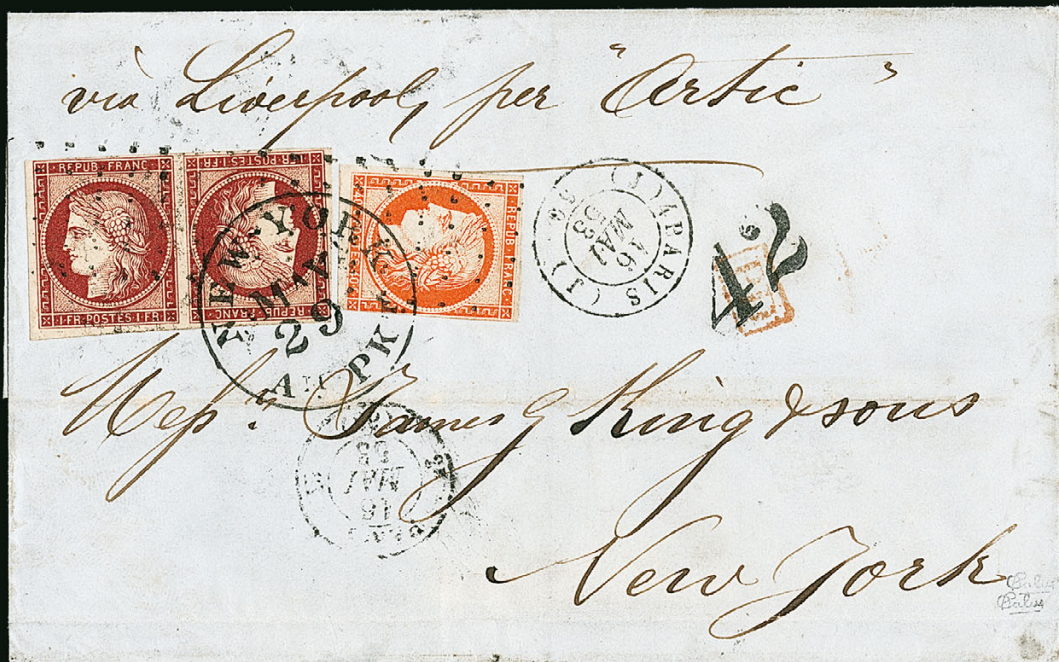 via Liverpool, per "Artic"
REPUB·FRANC·
1·FR·POSTES·1·FR
REPUB·FRANC·
1·FR·POSTES·1·FR
REPUB·FRANC·
NEW-YORK
MAY
29
AM. PKT.
(J) PARIS (J)
16
MAI
53
42
Mess. James G King & sons
16
MAI
53
New York
Calves